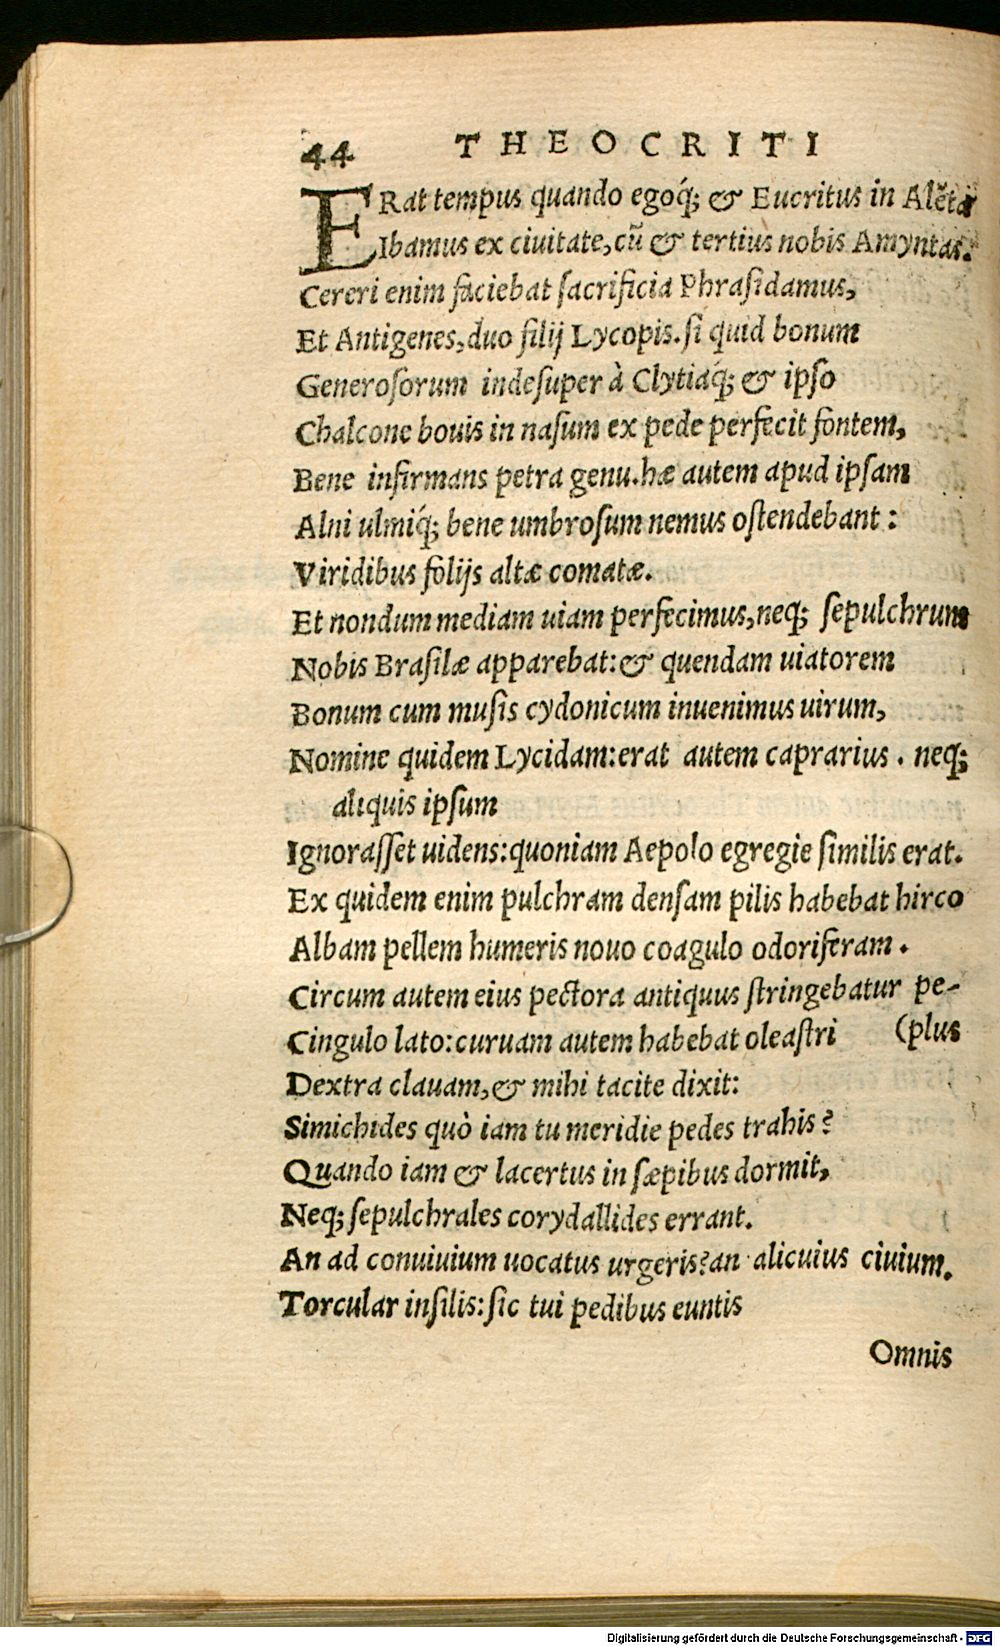 44 THEOCRITI
ERat tempus quando egoq́; & Eucritus in Alẽta
Ibamus ex ciuitate,cũ & tertius nobis Amyntas.
Cereri enim faciebat ſacrificia Phraſidamus,
Et Antigenes,duo filij Lycopis.ſi quid bonum
Generoſorum indeſuper à Clytiaq́; & ipſo
Chalcone bouis in naſum ex pede perfecit fontem,
Bene infirmans petra genu.hæ autem apud ipſam
Alni ulmiq́; bene umbroſum nemus oſtendebant :
Viridibus folijs altæ comatæ.
Et nondum mediam uiam perfecimus,neq; ſepulchrum
Nobis Braſilæ apparebat:& quendam uiatorem
Bonum cum muſis cydonicum inuenimus uirum,
Nomine quidem Lycidam:erat autem caprarius . neq;
aliquis ipſum
Ignoraſſet uidens:quoniam Aepolo egregie ſimilis erat.
Ex quidem enim pulchram denſam pilis habebat hirco
Albam pellem humeris nouo coagulo odoriferam .
Circum autem eius pectora antiquus ſtringebatur pe-
Cingulo lato:curuam autem habebat oleaſtri (plus
Dextra clauam,& mihi tacite dixit:
Simichides quò iam tu meridie pedes trahis?
Quando iam & lacertus in ſæpibus dormit,
Neq; ſepulchrales corydallides errant.
An ad conuiuium uocatus urgeris?an alicuius ciuium.
Torcular inſilis:ſic tui pedibus euntis
Omnis
Digitalisierung gefördert durch die Deutsche Forschungsgemeinschaft - DFG